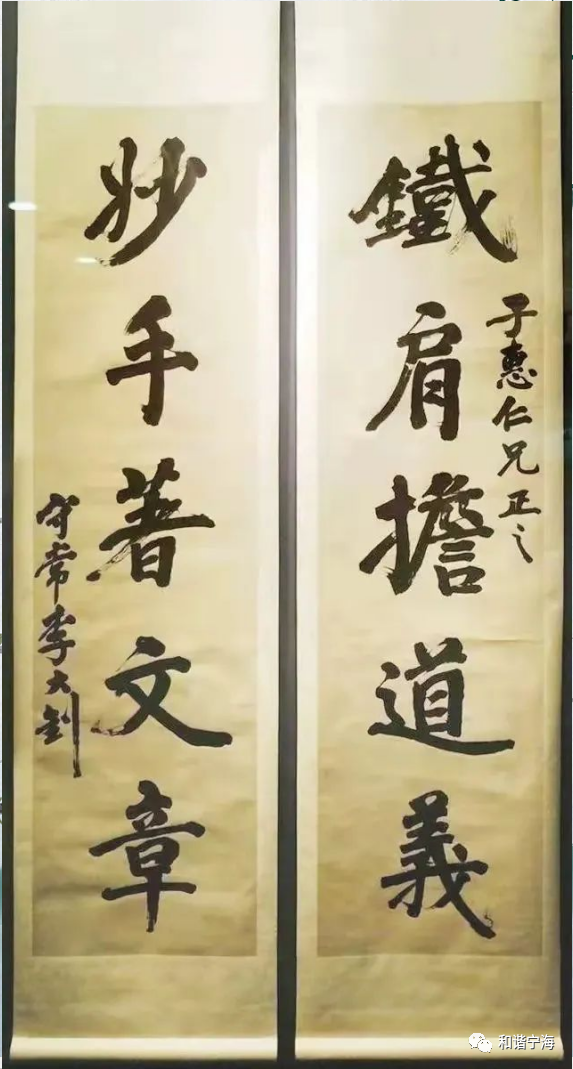 鐵肩擔道義
子惠仁兄正之
妙手著文章
守常李大釗
和谐宁海